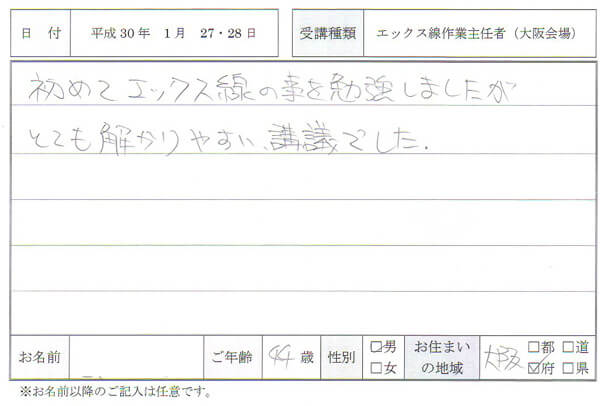 日 付 平成30年 1月 27・28日 受講種類 エックス線作業主任者（大阪会場）
初めてエックス線の事を勉強しましたが
とても解かりやすい、講議でした.
お名前 ご年齢 44 歳 性別 □男 □女 お住まいの地域 大阪 □都 □道 ☑府 □県
※お名前以降のご記入は任意です。